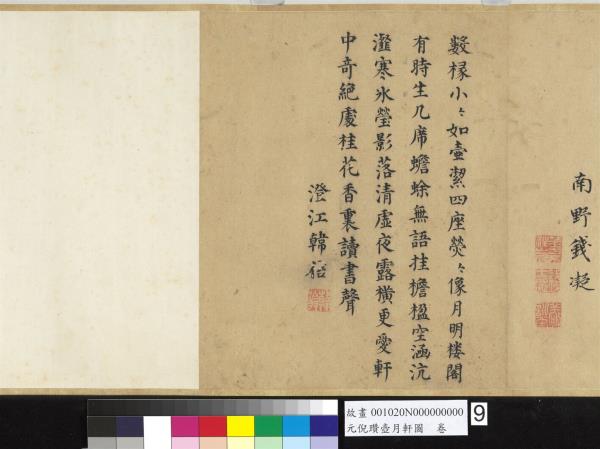 南野錢凝
數椽小〻如壺絜四座熒〻像月明楼閣
有時生几席蟾蜍無語挂檐楹空涵沆
瀣寒氷瑩影落清虛夜露橫更愛軒
中奇絕處桂花香裏讀書聲
澄江韓
故畫 001020N000000000
元倪瓚壺月軒圖 卷
9